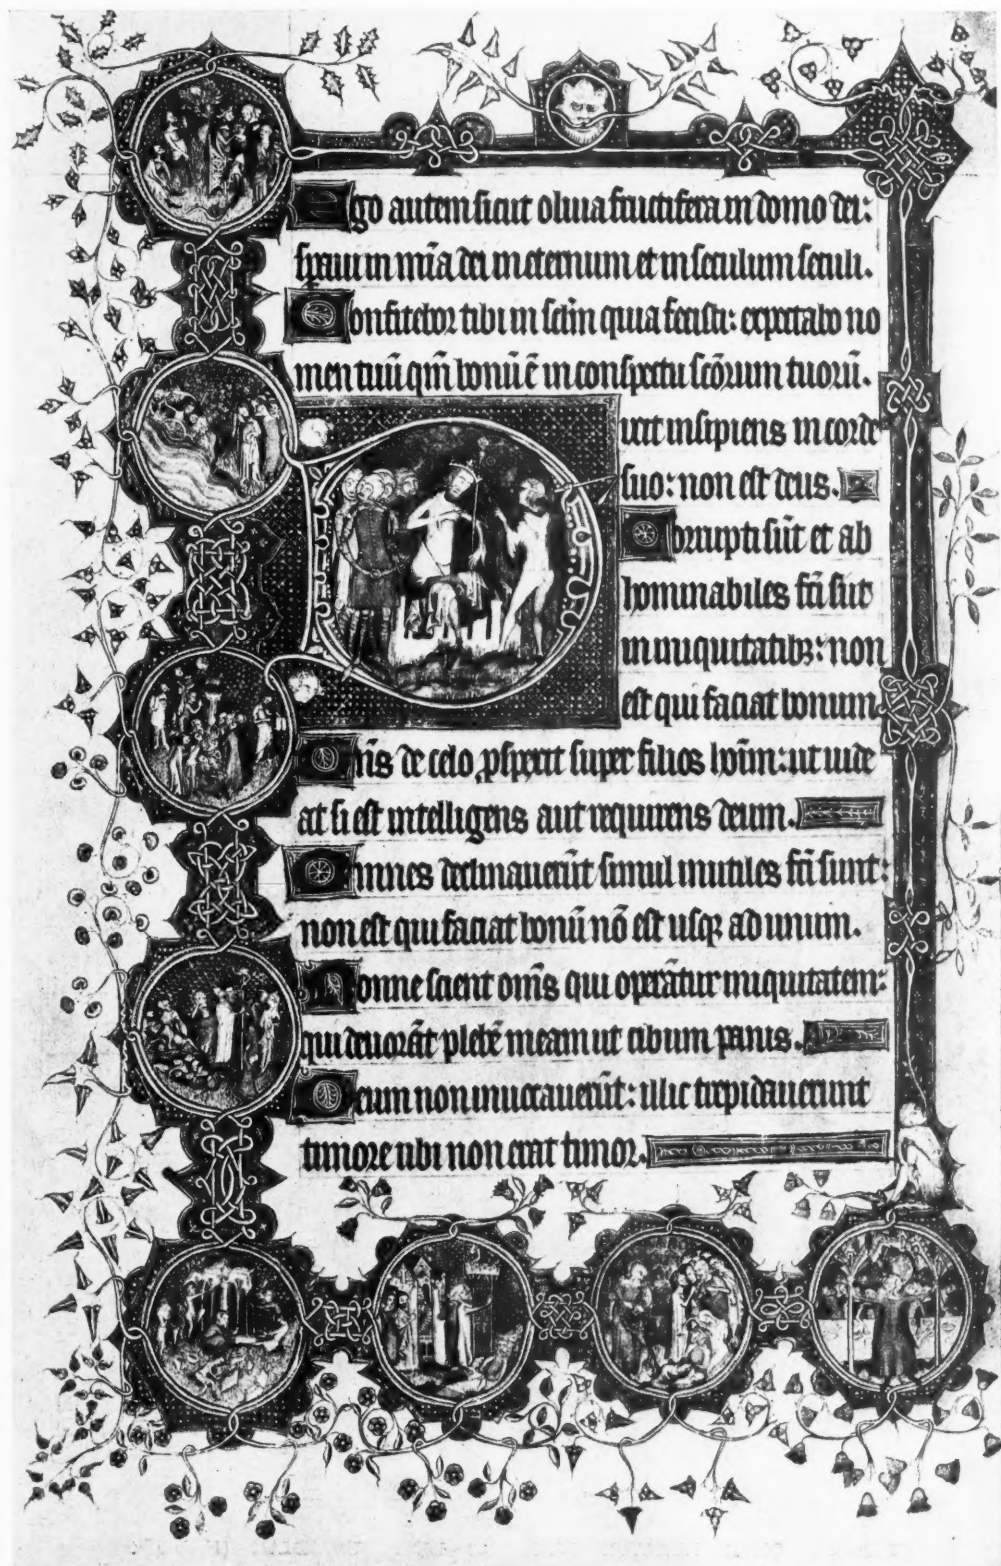 Ego autem sicut oliua fructifera in domo dei:
speraui in mīa dei in eternum et in seculum seculi.
Confitebor tibi in sclm quia fecisti: expectabo no
men tuū qm̄ bonū ē in conspectu scōrum tuorū.
Dixit insipiens in corde
suo: non est deus.
Corrupti sūt et ab
hominabiles fcī sūt
in iniquitatibꝫ: non
est qui faciat bonum
Dn̄s de celo ꝓspexit super filios hoīm: ut uide
at si est intelligens aut requirens deum.
Omnes declinauerūt simul inutiles fcī sunt:
non est qui faciat bonū nō est usqꝫ ad unum.
Nonne scient om̄s qui operātur iniquitatem:
qui deuorāt plebē meam ut cibum panis.
Deum non inuocauerūt: illic trepidauerunt
timore ubi non erat timor.